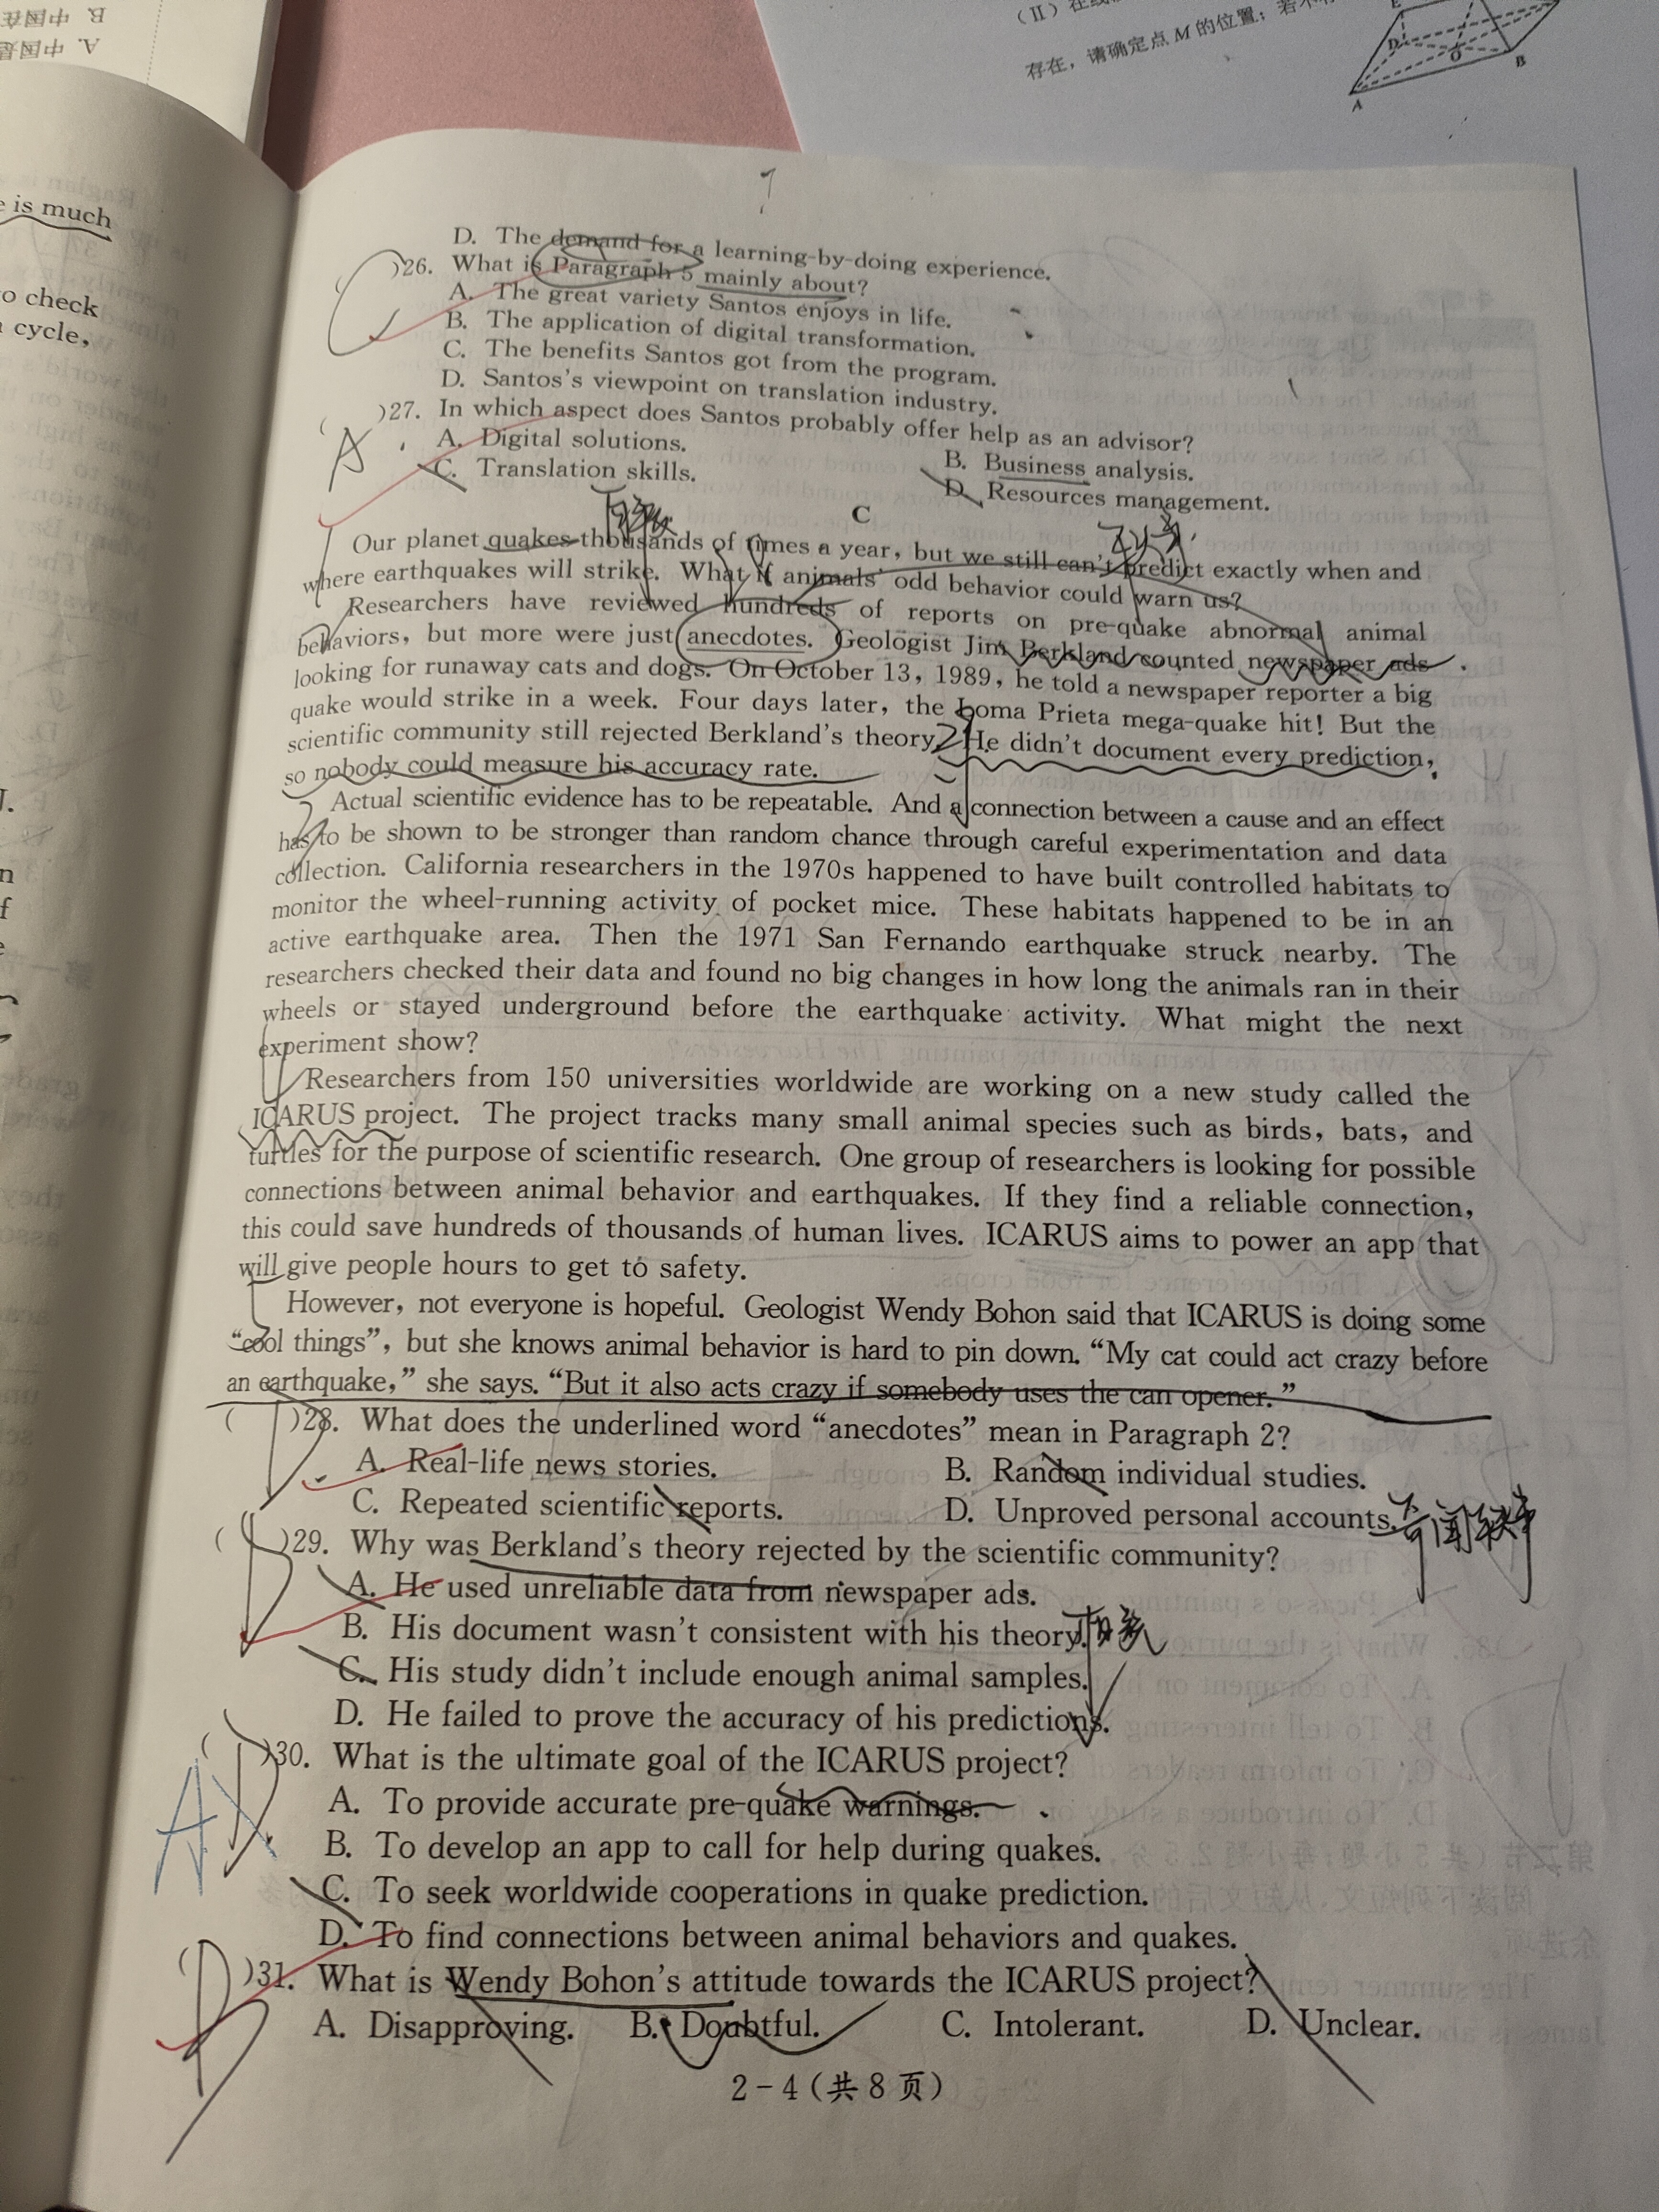 B. 中国在
A. 中国是
(Ⅱ)在线
存在，请确定点 M 的位置；若不存
E
D
O
B
A
e is much
o check
cycle,
D. The demand for a learning-by-doing experience.
)26. What is Paragraph 5 mainly about?
A. The great variety Santos enjoys in life.
B. The application of digital transformation.
C. The benefits Santos got from the program.
D. Santos's viewpoint on translation industry.
C
( )27. In which aspect does Santos probably offer help as an advisor?
A. Digital solutions.
B. Business analysis.
C. Translation skills.
D. Resources management.
A
C
Our planet quakes thousands of times a year, but we still can't predict exactly when and
where earthquakes will strike. What if animals' odd behavior could warn us?
Researchers have reviewed hundreds of reports on pre-quake abnormal animal
behaviors, but more were just anecdotes. Geologist Jim Berkland counted newspaper ads
looking for runaway cats and dogs. On October 13, 1989, he told a newspaper reporter a big
quake would strike in a week. Four days later, the Loma Prieta mega-quake hit! But the
scientific community still rejected Berkland's theory. He didn't document every prediction,
so nobody could measure his accuracy rate.
Actual scientific evidence has to be repeatable. And a connection between a cause and an effect
has to be shown to be stronger than random chance through careful experimentation and data
collection. California researchers in the 1970s happened to have built controlled habitats to
monitor the wheel-running activity of pocket mice. These habitats happened to be in an
active earthquake area. Then the 1971 San Fernando earthquake struck nearby. The
researchers checked their data and found no big changes in how long the animals ran in their
wheels or stayed underground before the earthquake activity. What might the next
experiment show?
Researchers from 150 universities worldwide are working on a new study called the
ICARUS project. The project tracks many small animal species such as birds, bats, and
turtles for the purpose of scientific research. One group of researchers is looking for possible
connections between animal behavior and earthquakes. If they find a reliable connection,
this could save hundreds of thousands of human lives. ICARUS aims to power an app that
will give people hours to get to safety.
However, not everyone is hopeful. Geologist Wendy Bohon said that ICARUS is doing some
"cool things", but she knows animal behavior is hard to pin down. "My cat could act crazy before
an earthquake," she says. "But it also acts crazy if somebody uses the can opener."
( )28. What does the underlined word "anecdotes" mean in Paragraph 2?
A. Real-life news stories.
B. Random individual studies.
C. Repeated scientific reports.
D. Unproved personal accounts.
奇闻轶事
D
( )29. Why was Berkland's theory rejected by the scientific community?
A. He used unreliable data from newspaper ads.
B. His document wasn't consistent with his theory.
C. His study didn't include enough animal samples.
D. He failed to prove the accuracy of his predictions.
D
( )30. What is the ultimate goal of the ICARUS project?
A. To provide accurate pre-quake warnings.
B. To develop an app to call for help during quakes.
C. To seek worldwide cooperations in quake prediction.
D. To find connections between animal behaviors and quakes.
A
D
( )31. What is Wendy Bohon's attitude towards the ICARUS project?
A. Disapproving.
B. Doubtful.
C. Intolerant.
D. Unclear.
B
2-4(共8页)